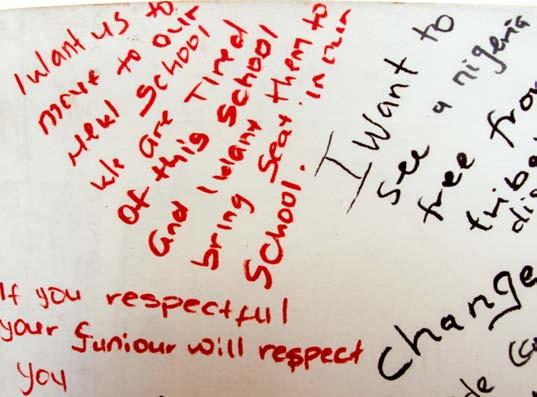 I want us to
move to our
new School
We are Tired
Of this School
and I want them to
bring Seat in our
School.
I Want to
See a nigeria
free from
If you respectful
your Juniour will respect
you
Change